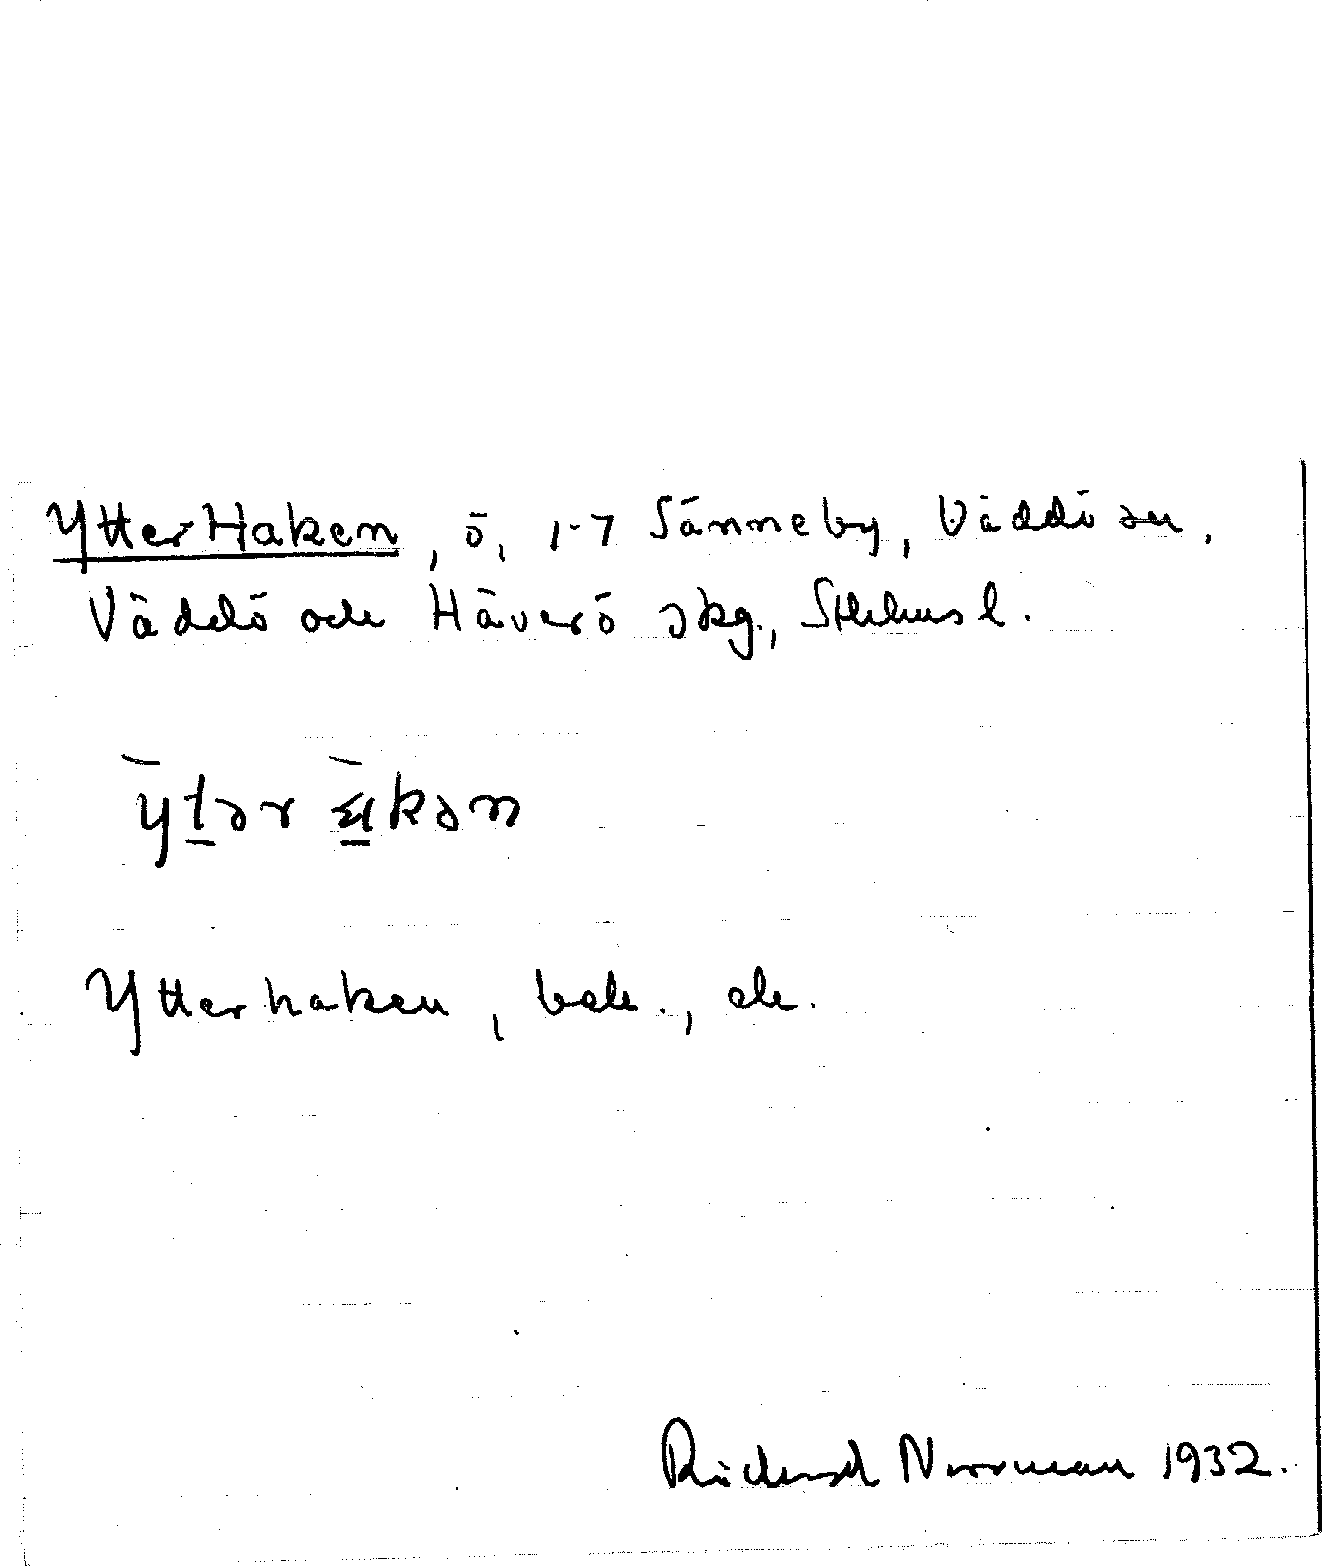 Ytter Haken, ö, 1-7 Sänneby, Väddö sn,
Väddö och Häverö skg, Sthlms l.
ytər kən
Ytterhaken, bek., ek.
Rickard Norrman 1932.